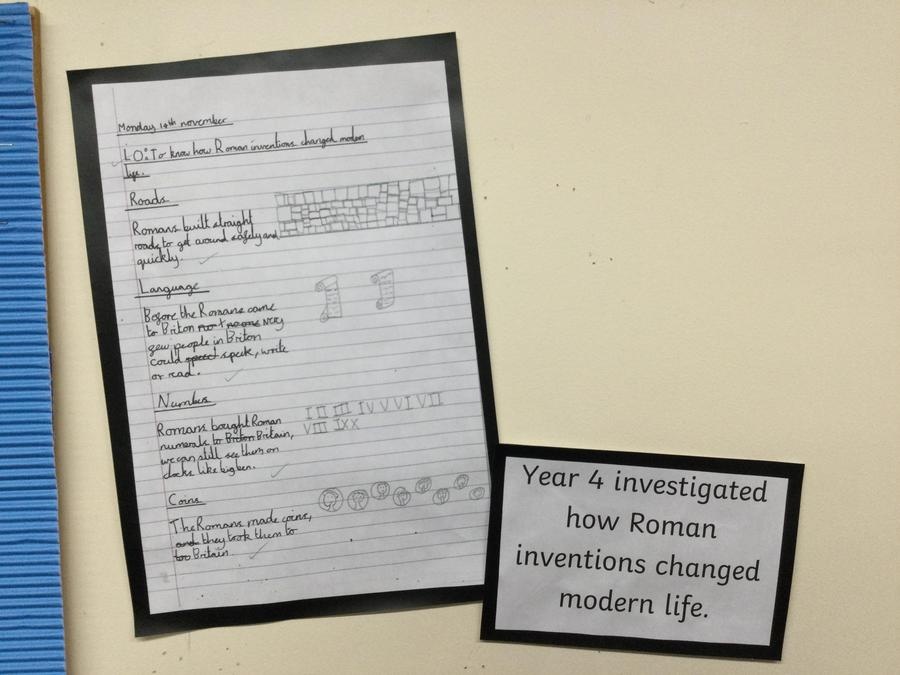 Monday 14th november
LO: To know how Roman inventions changed modern
life.
Roads
Romans built straight
roads to get around safely and
quickly.
Language
Before the Romans came
to Briton no one very
few people in Briton
could speect speak, write
or read.
Numbers
Romans bought Roman
numerals to Briton Britain,
we can still see them on
clocks like big ben.
I II III IV V VI VII
VIII IX X
Coins
The Romans made coins,
and they took them to
too Britain
Year 4 investigated
how Roman
inventions changed
modern life.